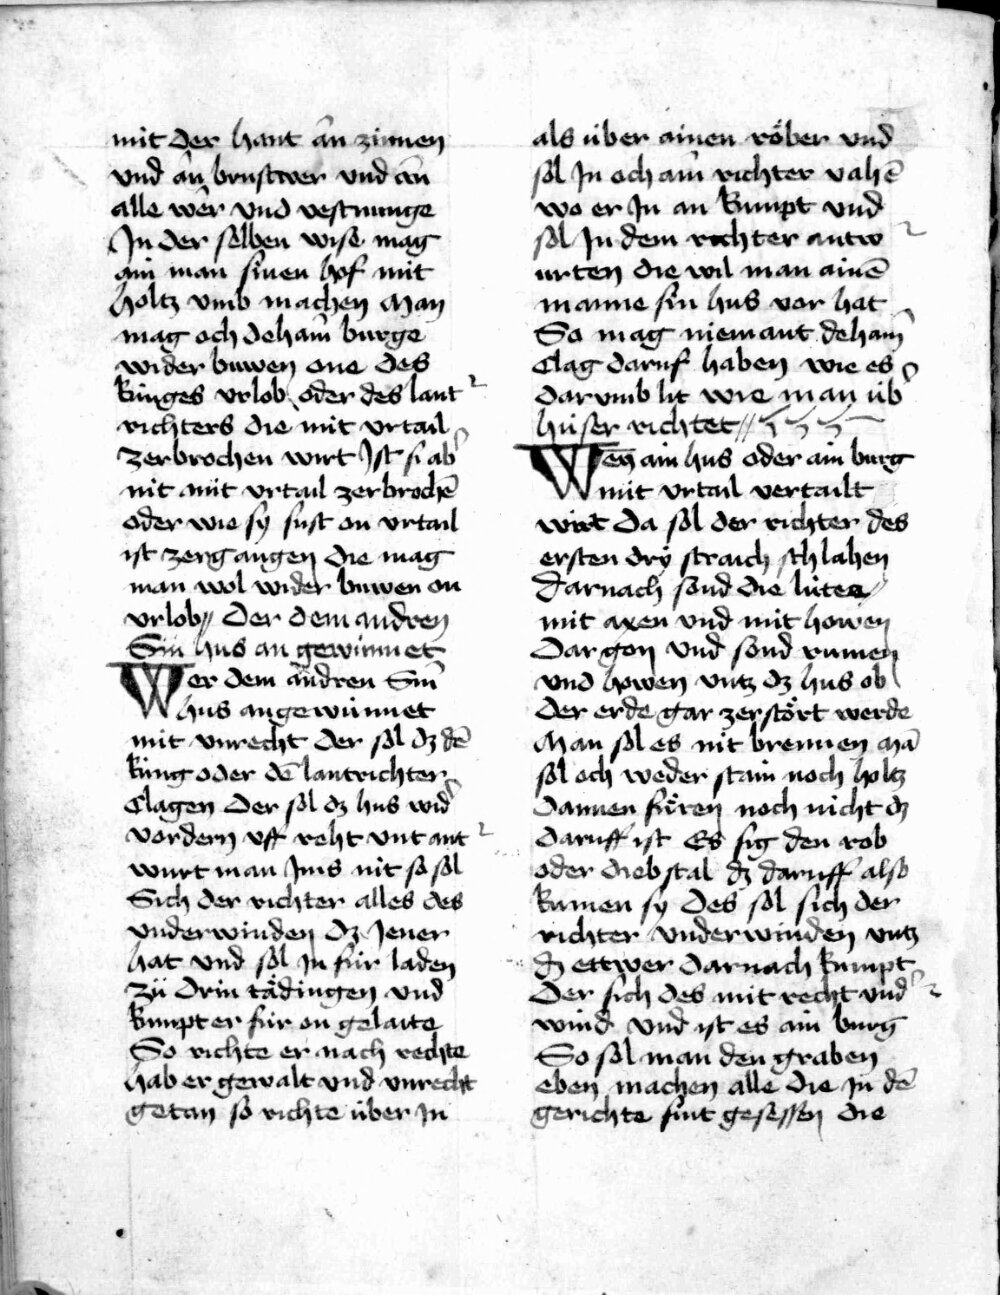 mit der hant an zinnen
vnd an brustwer vnd an
alle wer vnd vestnunge
In der selben wise mag
ain man sinen hof mit
holtz vmb machen Man
mag och dehain burge
wider buwen one des
kunges vrlob oder des lant
richters die mit vrtail
zerbrochen wirt Ist si ab
nit mit vrtail zerbrochē
oder wie sy sust on vrtail
ist zergangen die mag
man wol wider buwen on
vrlob// Der dem andren
Sin hus an gewinnet
Wer dem andren Sin
hus angewünnet
mit vnrecht der sol dz dē
kúng oder dē lantrichter
Clagen Der sol dz hus wid
vordern vff reht vnt ant
wurt man Ims nit so sol
Sich der richter alles des
vnderwinden dz Jener
hat vnd sol in für laden
zü drin tädingen vnd
kumpt er für on gelaite
So richte er nach rechte
hab er gewalt vnd vnrecht
getan so richte über In
als über ainen röber vnd
sol In och ain richter vahē
wo er In an kumpt vnd
sol In dem richter antw
urten die wil man ainē
manne sin hus vor hat
So mag niemant dehain
Clag daruf haben wie es
darumb lit wie man üb
húser richtet//
Wen ain hus oder ain burg
mit vrtail vertailt
wirt Da sol der richter des
ersten dry straich schlahen
Darnach sond die lüte
mit axen vnd mit howen
Dar gon vnd sond rumen
vnd howen vntz dz hus ob
der erde gar zerstört werde
Man sol es nit brennen Mā
sol och weder stain noch holtz
Dannen füren noch nicht dz
daruff ist Es sig den rob
oder diebstal dz daruff also
kumen sy Des sol sich der
richter vnderwinden vntz
dz ettwer darnach kumpt
Der sich des mit recht vnd
wind vnd ist es ain burg
So sol man den graben
eben machen alle die in dē
gerichte sint gesessen die